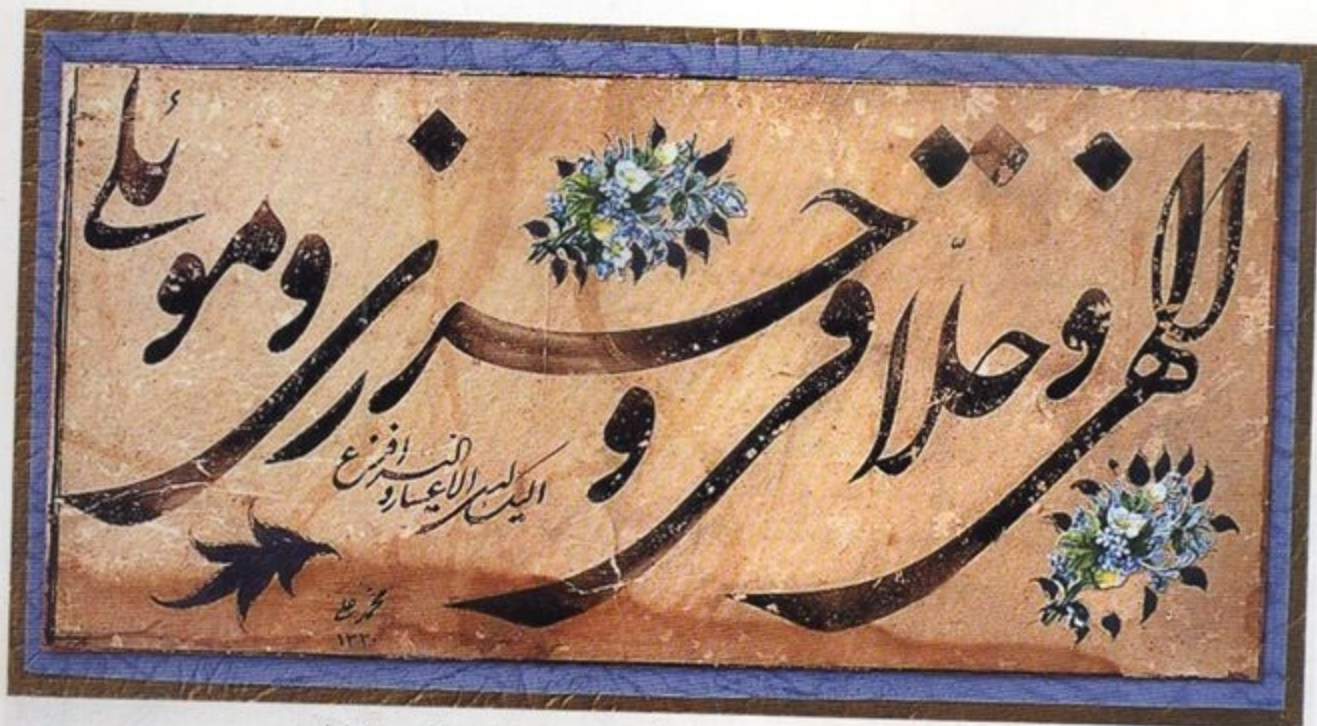 الاهی و خلاقی و حرزی و موئلی
الیک لدی الاعسار و الیسر افزع
محمد علی
۱۳۳۰